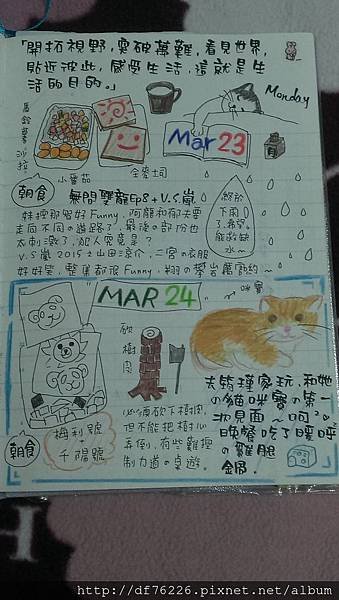 「開拓視野，突破萬難，看見世界，
貼近彼此，感受生活，這就是生
活的目的。」
Monday
Mar 23
馬鈴薯沙拉
全麥土司
小番茄
朝食
無間雙龍Ep8+V.S嵐
終於
下雨
了，希望
能救缺
水～
妹控那男好Funny，阿龍和郁夫要
走向不同の道路了，最後の部份也
太刺激了，犯人究竟是？
V.S嵐 2015±山田涼介、二宮の衣服
好好笑，整集都很Funny，翔の攀岩
MAR 24
咪寶
砍
樹
肉
朝食
梅利號
千陽號
必須砍下樹肉，
但不能把樹心
弄倒，有些難控
制力道の桌遊。
去筑瑾家玩，和她
の貓咪寶の第一
次見面，呵~
晚餐吃了暖呼
の雞腿
鍋
http://df76226.pixnet.net/album